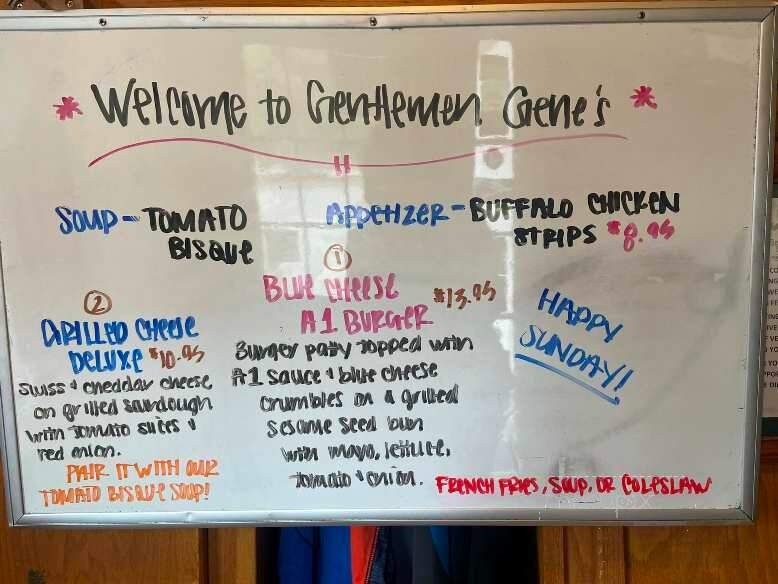 * Welcome to Gentlemen Gene's *
Soup - TOMATO
BISQUE
Appetizer - BUFFALO CHICKEN
STRIPS $8.95
①
BLUE CHEESE $13.95
A1 BURGER
Burger patty topped with
A1 sauce & blue cheese
crumbles on a grilled
sesame seed bun
with mayo, lettuce,
tomato & onion.
②
GRILLED CHEESE
DELUXE $10.95
Swiss & cheddar cheese
on grilled sourdough
with tomato slices &
red onion.
PAIR IT WITH OUR
TOMATO BISQUE SOUP!
HAPPY
SUNDAY!
FRENCH FRIES, SOUP, OR COLESLAW